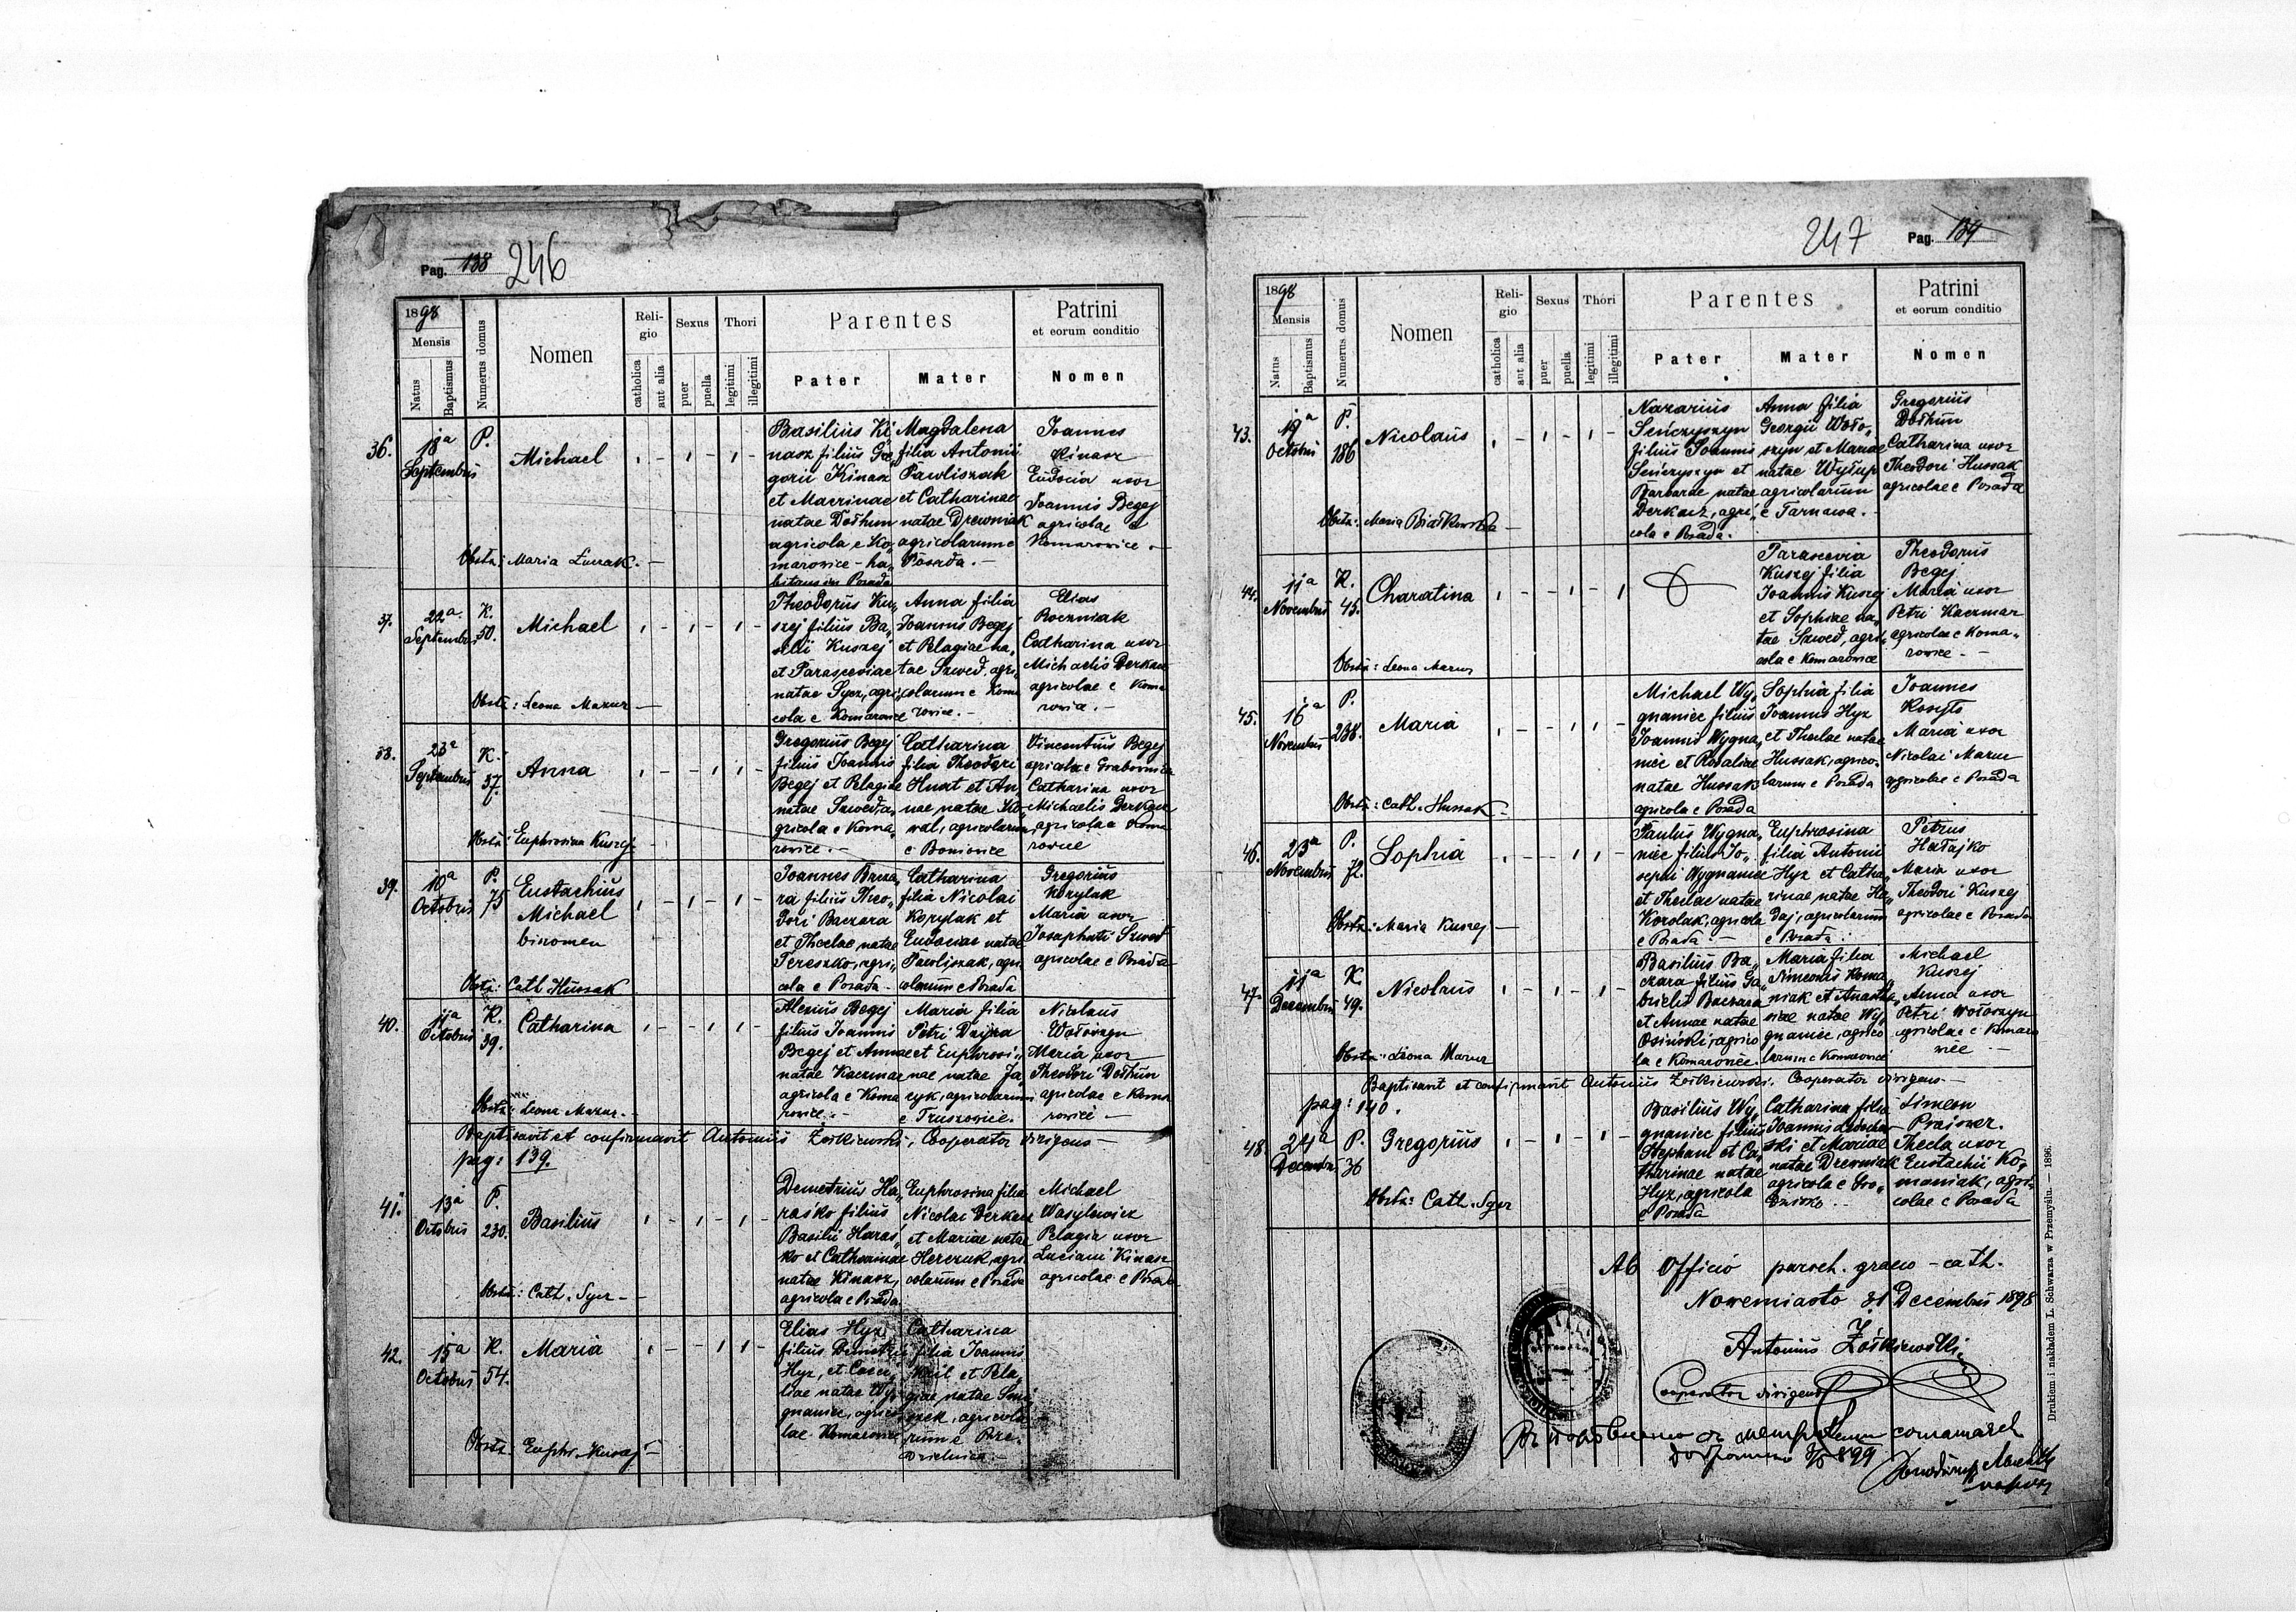 Pag. 138 246
1898
Mensis
Natus
Baptismus
Numerus domus
Nomen
Reli-
gio
catholica
aut alia
Sexus
puer
puella
Thori
legitimi
illegitimi
Parentes
Pater
Mater
Patrini
et eorum conditio
Nomen
36.
18a
Septembris
P.
Michael
Basilius Ki
nasz filius Gre„
gorii Kinasz
et Macrinae
natae Dołhun
agricola e Ko„
marowice - ha„
bitans in Posada
Magdalena
filia Antonii
Pawliszak
et Catharinae
natae Drewniak
agricolarum e
Posada. —
Joannes
Kinasz
Eudocia uxor
Joannis Begej
agricolae e
Komarowice. —
Obstx: Maria Luczak. —
37.
22a
Septembris
K.
50.
Michael
Theodorus Ku„
szej filius Ba„
silii Kuszej
et Parasceviae
natae Sycz, agri„
cola e Komarowice
Anna filia
Joannis Begej
et Pelagiae na„
tae Szwed, agri„
colarum e Koma
rowice. —
Elias
Roczniak
Catharina uxor
Michaelis Derkacz
agricolae e Koma
rowice. —
Obstx: Leona Mazur —
38.
23a
Septembris
K.
37.
Anna
Gregorius Begej
filius Joannis
Begej et Pelagiae
natae Szweda, a„
gricola e Koma„
rowice. —
Catharina
filia Theodori
Husat et An„
nae natae Ko„
wal, agricolarum
e Boniowice
Vincentius Begej
agricola e Grabownica
Catharina uxor
Michaelis Derkacz
agricolae e Koma
rowice
Obstx: Euphrosina Kuszej
39.
10a
Octobris
P.
75
Eustachius
Michael
binomen
Joannes Bacza„
ra filius Theo„
dori Baczara
et Theclae natae
Tereszko, agri„
cola e Posada —
Catharina
filia Nicolai
Korylak et
Eudociae natae
Pawliszak, agri
colarum e Posada
Gregorius
Korylak
Maria uxor
Josaphati Szwed
agricolae e Posada
Obstx: Cath. Hussak
40.
11a
Octobris
K.
39.
Catharina
Alexius Begej
filius Joannis
Begej et Annae
natae Kaczmar
agricola e Koma
rowice. —
Maria filia
Petri Dzijra
et Euphrosi„
nae natae Ja„
cyk, agricolarum
e Truszowice.
Nicolaus
Wołoszyn
Maria uxor
Theodori Dołhun
agricolae e Koma
rowice —
Obstx: Leona Mazur. —
Baptisavit et confirmavit Antonius Żołkiewski, Cooperator dirigens —
pag: 139.
41.
13a
Octobris
P.
230.
Basilius
Demetrius Ha„
raśko filius
Basilii Haraś„
ko et Catharinae
natae Kinasz,
agricola e Posada.
Euphrosina filia
Nicolai Derkacz
et Mariae natae
Herczuk, agri„
colarum e Posada
Michael
Wasylewicz
Pelagia uxor
Luciani Kinasz
agricolae e Posada
Obstx: Cath. Sycz —
42.
15a
Octobris
K.
54.
Maria
Elias Hyz
filius Demetrii
Hyz, et Caeci„
liae natae Wy„
gnaniec, agrico„
lae Komarowice
Catharina
filia Joannis
Kril et Pela„
giae natae
agricola„
rum e Prze„
dzielnica —
Obstx: Euphr. Kuszej —
247 Pag. 139
1898
Mensis
Natus
Baptismus
Numerus domus
Nomen
Reli-
gio
catholica
aut alia
Sexus
puer
puella
Thori
legitimi
illegitimi
Parentes
Pater
Mater
Patrini
et eorum conditio
Nomen
43.
19a
Octobris
P.
186
Nicolaus
Nazarius
Seńczyszyn
filius Joannis
Seńczyszyn et
Barbarae natae
Derkacz, agri„
cola e Posada.
Anna filia
Georgii Woło„
szyn et Mariae
natae Wyłup
agricolarum
e Tarnawa. —
Gregorius
Dołhun
Catharina uxor
Theodori Hussak
agricolae e Posada
Obstx: Maria Białkowska —
44.
11a
Novembris
K.
45.
Charatina
Parascevia
Kuszej filia
Joannis Kuszej
et Sophiae na„
tae Szwed, agri„
cola e Komarowice
Theodorus
Begej
Maria uxor
Petri Kaczmar
agricolae e Koma„
rowice. —
Obstx: Leona Mazur
45.
16a
Novembris
P.
238.
Maria
Michael Wy„
gnaniec filius
Joannis Wygna„
niec et Rosaliae
natae Hussak
agricola e Posada
Sophia filia
Joannis Hyz
et Theclae natae
Hussak, agrico„
larum e Posada
Joannes
Kosyło
Maria uxor
Nicolai Mazur
agricolae e Posada
Obstx: Cath. Hussak —
46.
23a
Novembris
P.
72.
Sophia
Paulus Wygna„
niec filius Jo„
sephi Wygnaniec
et Theclae natae
Korolak, agricola
e Posada. —
Euphrosina
filia Antonii
Hyz et Catha„
rinae natae Ha„
daj, agricolarum
e Posada.
Petrus
Hałajko
Maria uxor
Theodori Kuszej
agricolae e Posada
Obstx: Maria Kuszej —
47.
11a
Decembris
K.
49.
Nicolaus
Basilius Ba„
czara filius Ga„
brielis Baczara
et Annae natae
Osiński, agrico
la e Komarowice.
Maria filia
Simeonis Roma„
niak et Anasta„
siae natae Wy„
gnaniec, agrico
larum e Komarowice
Michael
Kuszej
Anna uxor
Petri Wołoszyn
agricolae e Komaro
wice —
Obstx: Leona Mazur
Baptisavit et confirmavit Antonius Żołkiewski. Cooperator dirigens. —
pag: 140.
48.
24a
Decembris
P.
36
Gregorius
Basilius Wy„
gnaniec filius
Stephani et Ca„
tharinae natae
Hyz, agricola
e Posada
Catharina filia
Joannis
et Mariae
natae Drewniak
agricola e Gro„
dzisko. —
Simeon
Prajzner.
Thecla uxor
Eustachii Ro„
maniak, agri„
colae e Posada
Obstx: Cath. Sycz
Ab Officio paroch. graeco - cath.
Nowemiasto 31 Decembris 1898
Antonius Żołkiewski
Cooperator dirigens
Drukiem i nakładem L. Schwarza w Przemyślu. — 1896.